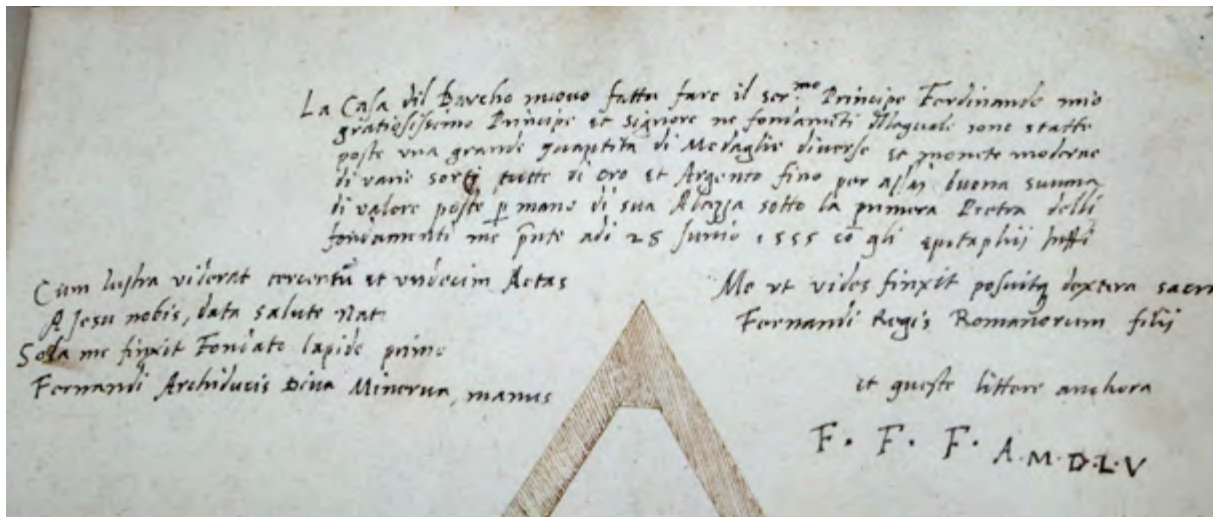 La Casa dil Barcho nuovo fattu fare il ser.mo Principe Ferdinando mio
gratiosissimo Principe et Signore ne fondamẽti Nleguale sono statte
poste una grande quantita di Medaglie diverse et monete moderne
di varie sorti tutte di oro et Argento fino per assai buona summa
di valore poste p mano di sua Altezza sotto la primera Pietra delli
fondamenti me pñte adi 28 Junio 1555 cõ gli epitaphii
Cum lustra viderat tercentũ et undecim Aetas
A Jesu nobis, data salute nat
Sola me finxit Fondato lapide primo
Fernandi Archiducis Diva Minerva, manus
Me ut vides finxit posuitq dextera sacri
Fernandi Regis Romanorum filii
et queste littere anchora
F. F. F. A.M.D.L.V